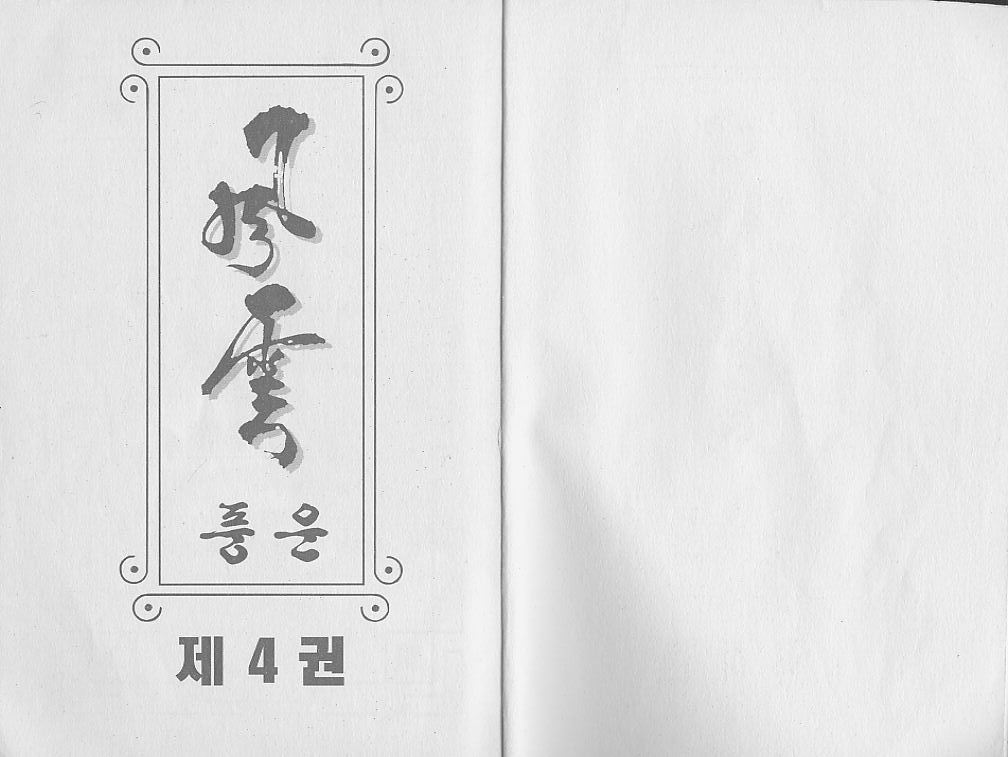 風雲
풍운
제 4 권